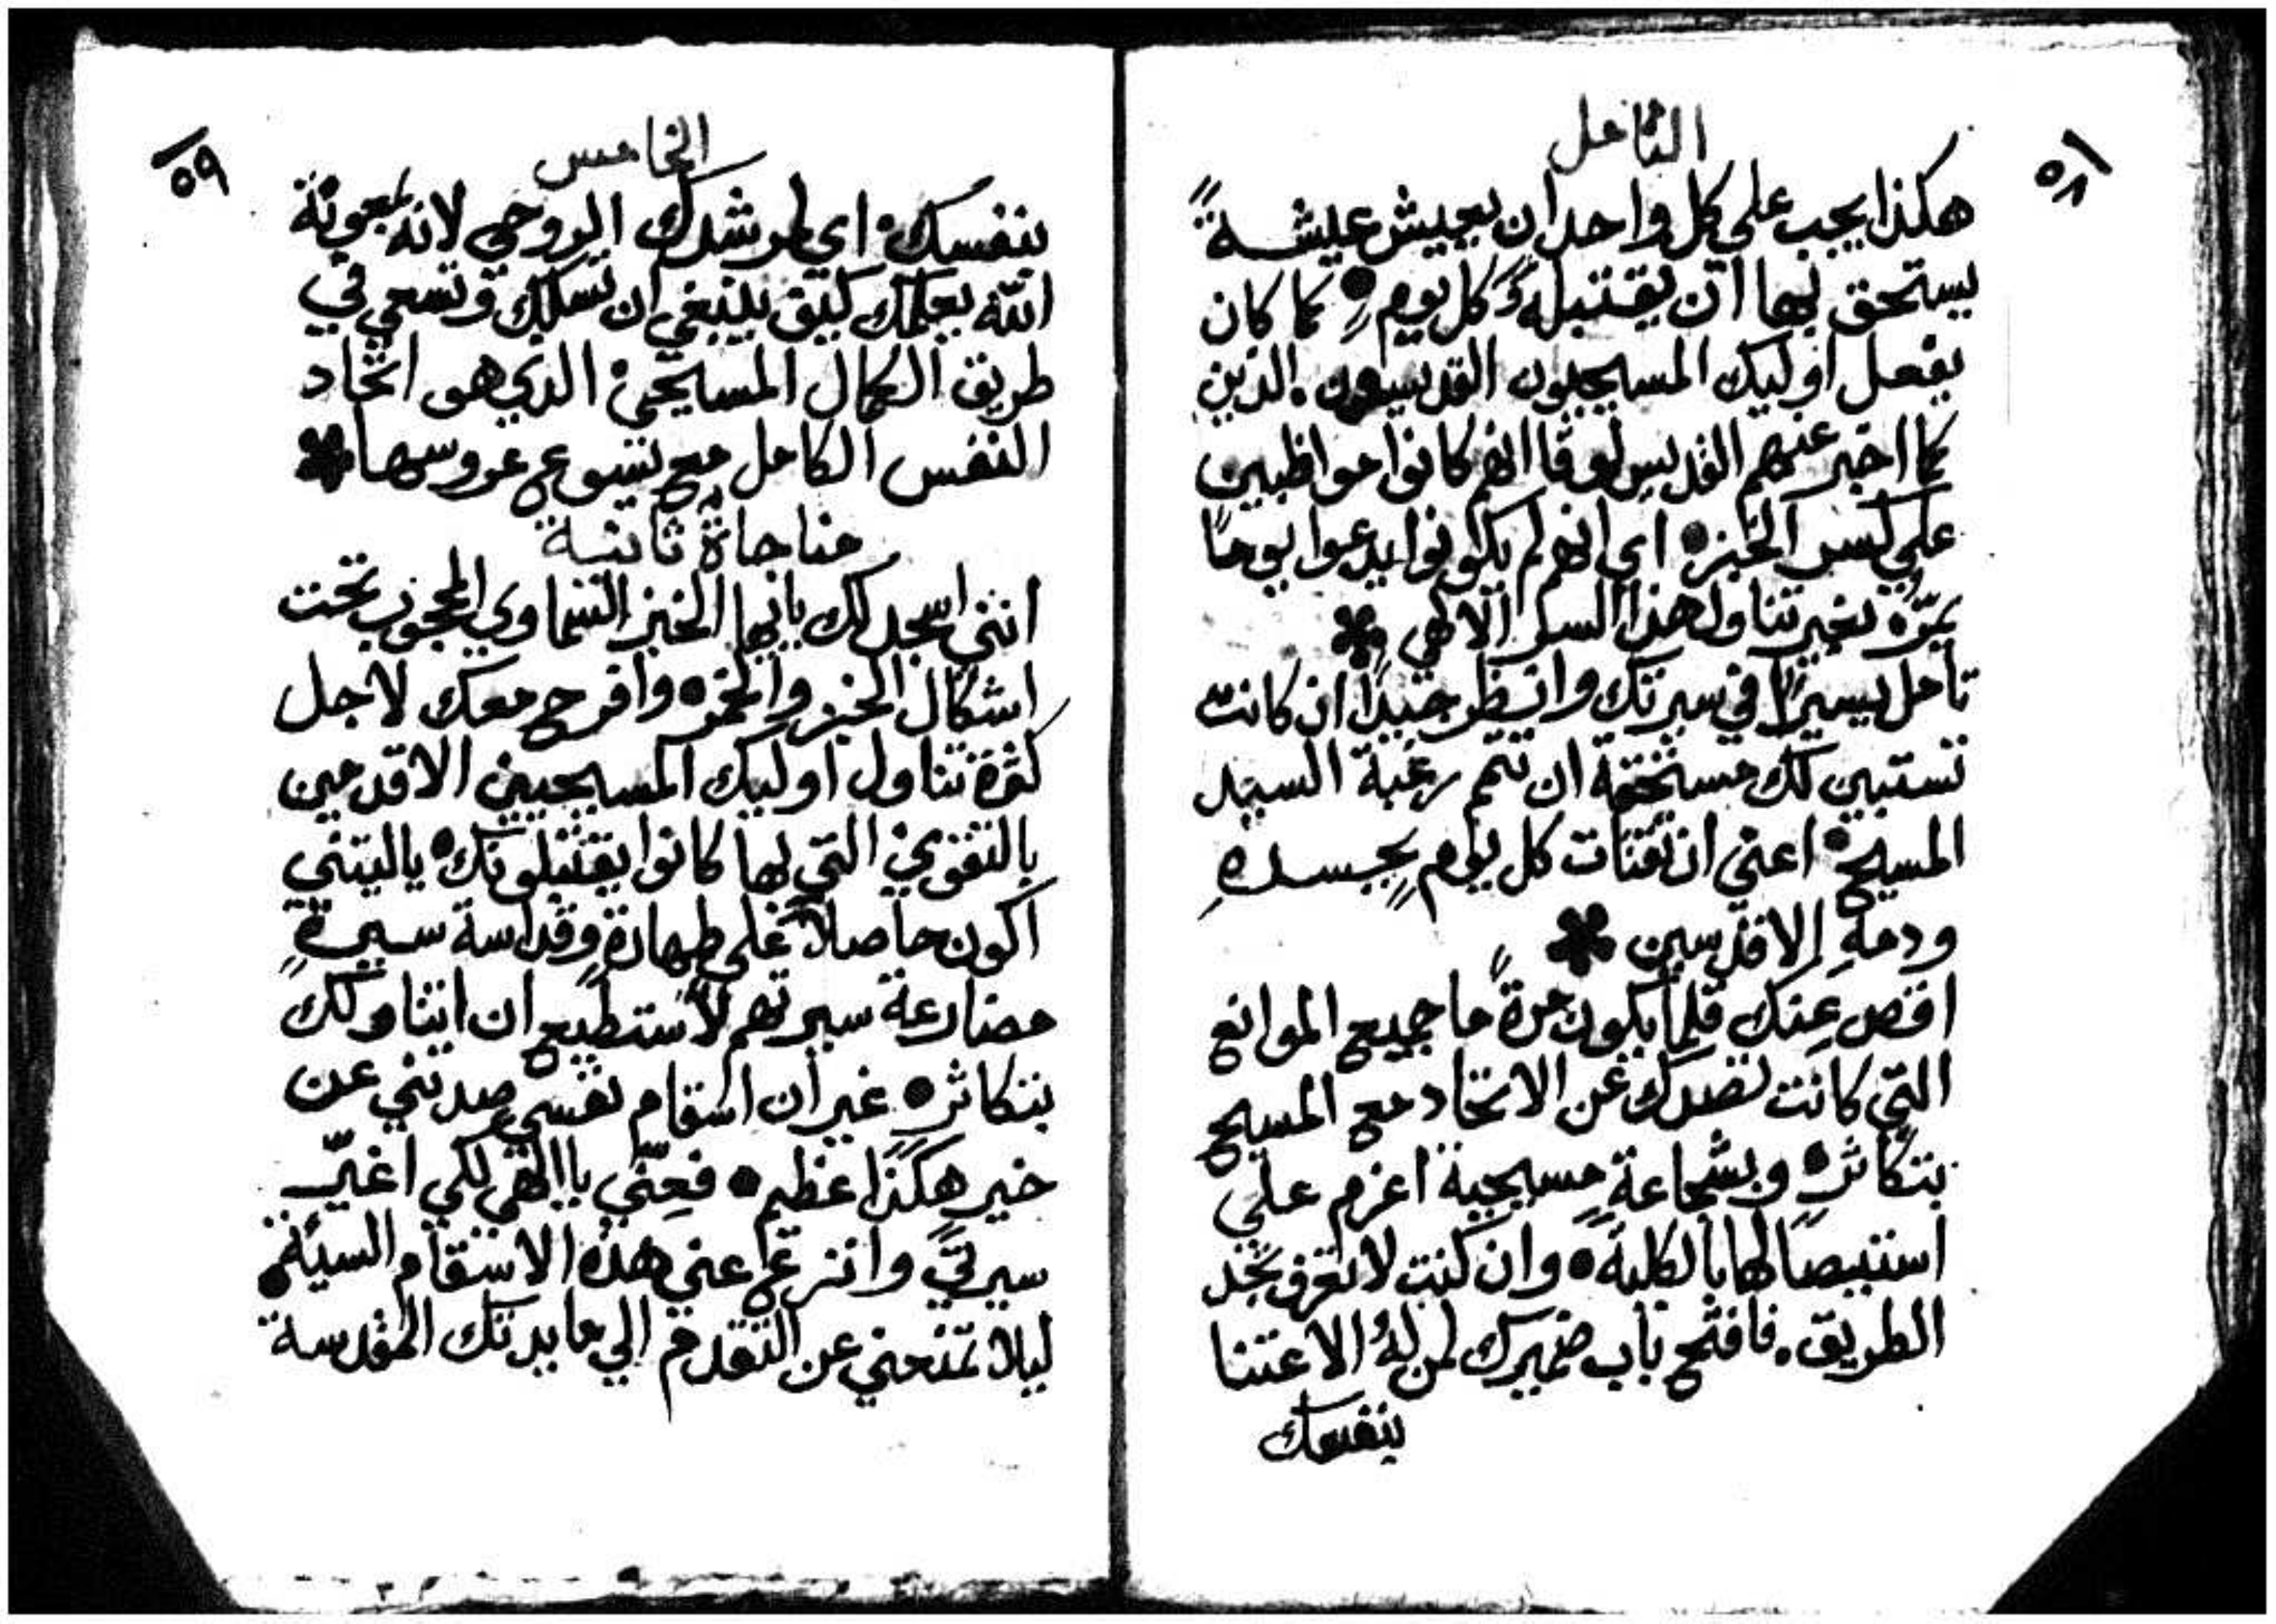 ٥٨
التامل
هكذا يجب علي كل واحد ان يعيش عيشةً
يستحق بها ان يقتبلهُ كل يومٍ ● كما كان
يفعل اوليك المسيحيون القديسون. الذين
كما اخبر عنهم القديس لوقا انهم كانوا مواظبين
علي كسر الخبز ● اي انهم لم يكونوا يدعوا يوماً
يمرّ بغير تناول هذا السر الالهي ✽
تامل يسيرًا في سيرتك وانظر جيدًا ان كانت
تستبين لك مستحقة ان تتم رغبة السيد
المسيح ● اعني ان تقتات كل يومٍ بجسدهِ
ودمهِ الاقدسين ✽
افحص عنك قلما يكون مرةً ما جميع الموانع
التي كانت تصدك عن الاتحاد مع المسيح
بتكاثر ● وبشجاعةٍ مسيحية اعزم علي
استيصالها بالكلية ● وان كنت لا تعرف تجد
الطريق. فافتح باب ضميرك لمن لهُ الاعتنا
بنفسك
٥٩
الخامس
بنفسك ● اي لمرشدك الروحي لانه بمعونة
الله يعلمك كيف ينبغي ان تسلك وتسعي في
طريق الكمال المسيحي ● الذي هو اتحاد
النفس الكامل مع يسوع عروسها ✽
مناجاةٌ ثانية
انني اسجد لك يا ايها الخبز السماوي المحجوب تحت
اشكال الخبز والخمر ● وافرح معك لاجل
كثرة تناول اوليك المسيحيين الاقدمين
بالتقوي التي بها كانوا يقتبلونك ● ياليتني
اكون حاصلاً علي طهارةٍ وقداسة سيرةٍ
مضارعة سيرتهم لاستطيع ان اتناولك
بتكاثر ● غير ان اسقام نفسي صدتني عن
خير هكذا عظيم ● فعِنّي يا الهي لكي اغيّر
سيرتي وانزع عني هذه الاسقام السيئة
ليلا تمنعني عن التقدم الي مايدتك المقدسة